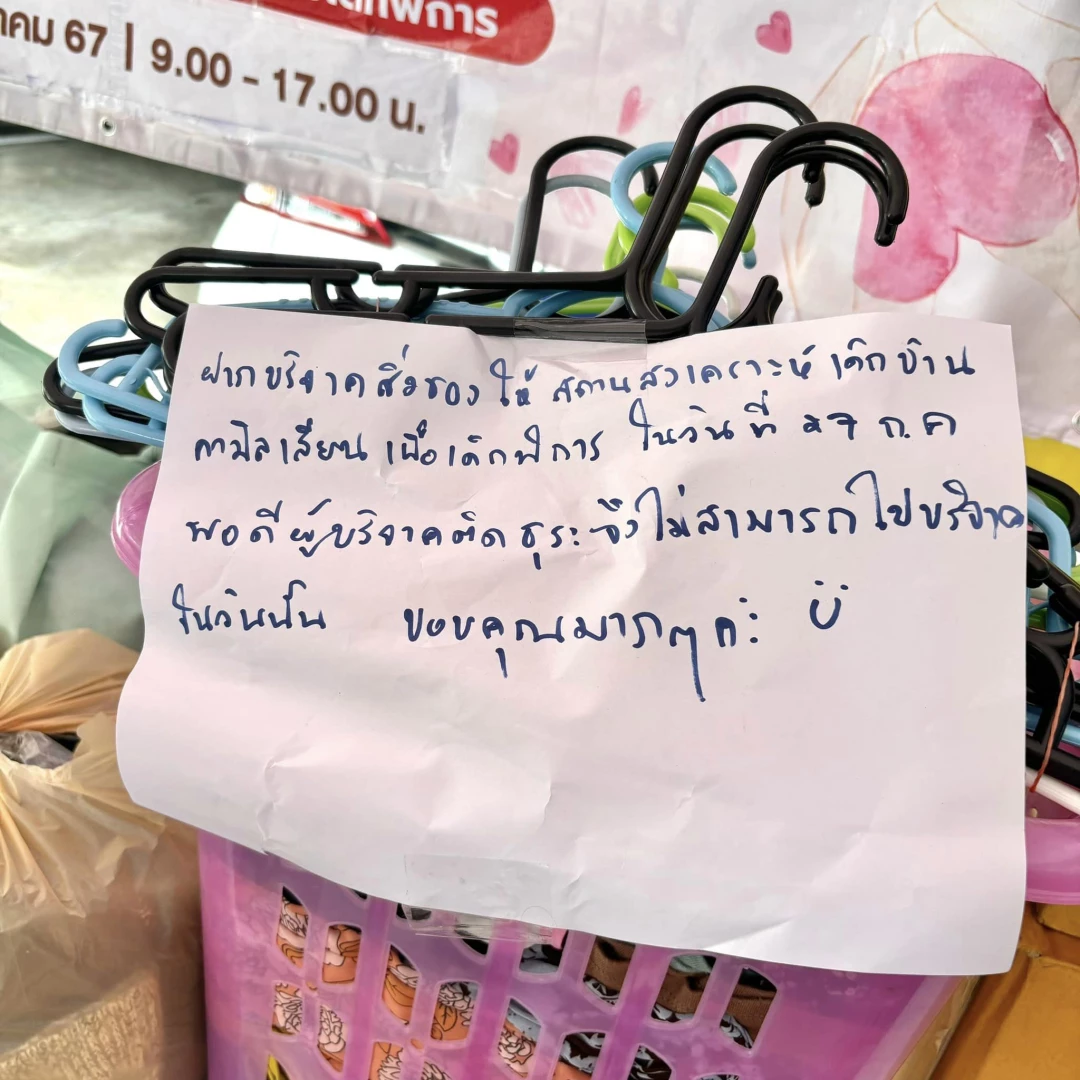 พิการ
คม 67 | 9.00 - 17.00 น.
ฝากบริจาคสิ่งของให้ สถานสงเคราะห์เด็กบ้าน
คามิลเลียน เพื่อเด็กพิการ ในวันที่ 27 ก.ค
พอดีผู้บริจาคติดธุระจึงไม่สามารถไปบริจาค
ในวันนั้น ขอบคุณมากๆค่ะ Ü